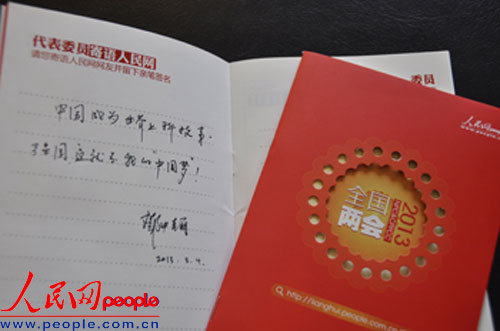 代表委员寄语人民网
请您寄语人民网网友并留下亲笔签名
中国成为世界上科
强国这就是我的“中国梦”!
2013.3.4.
委员
人民网
www.people.com.cn
全国
两会
2013
http://lianghui.people.com.cn
人民网 people
www.people.com.cn